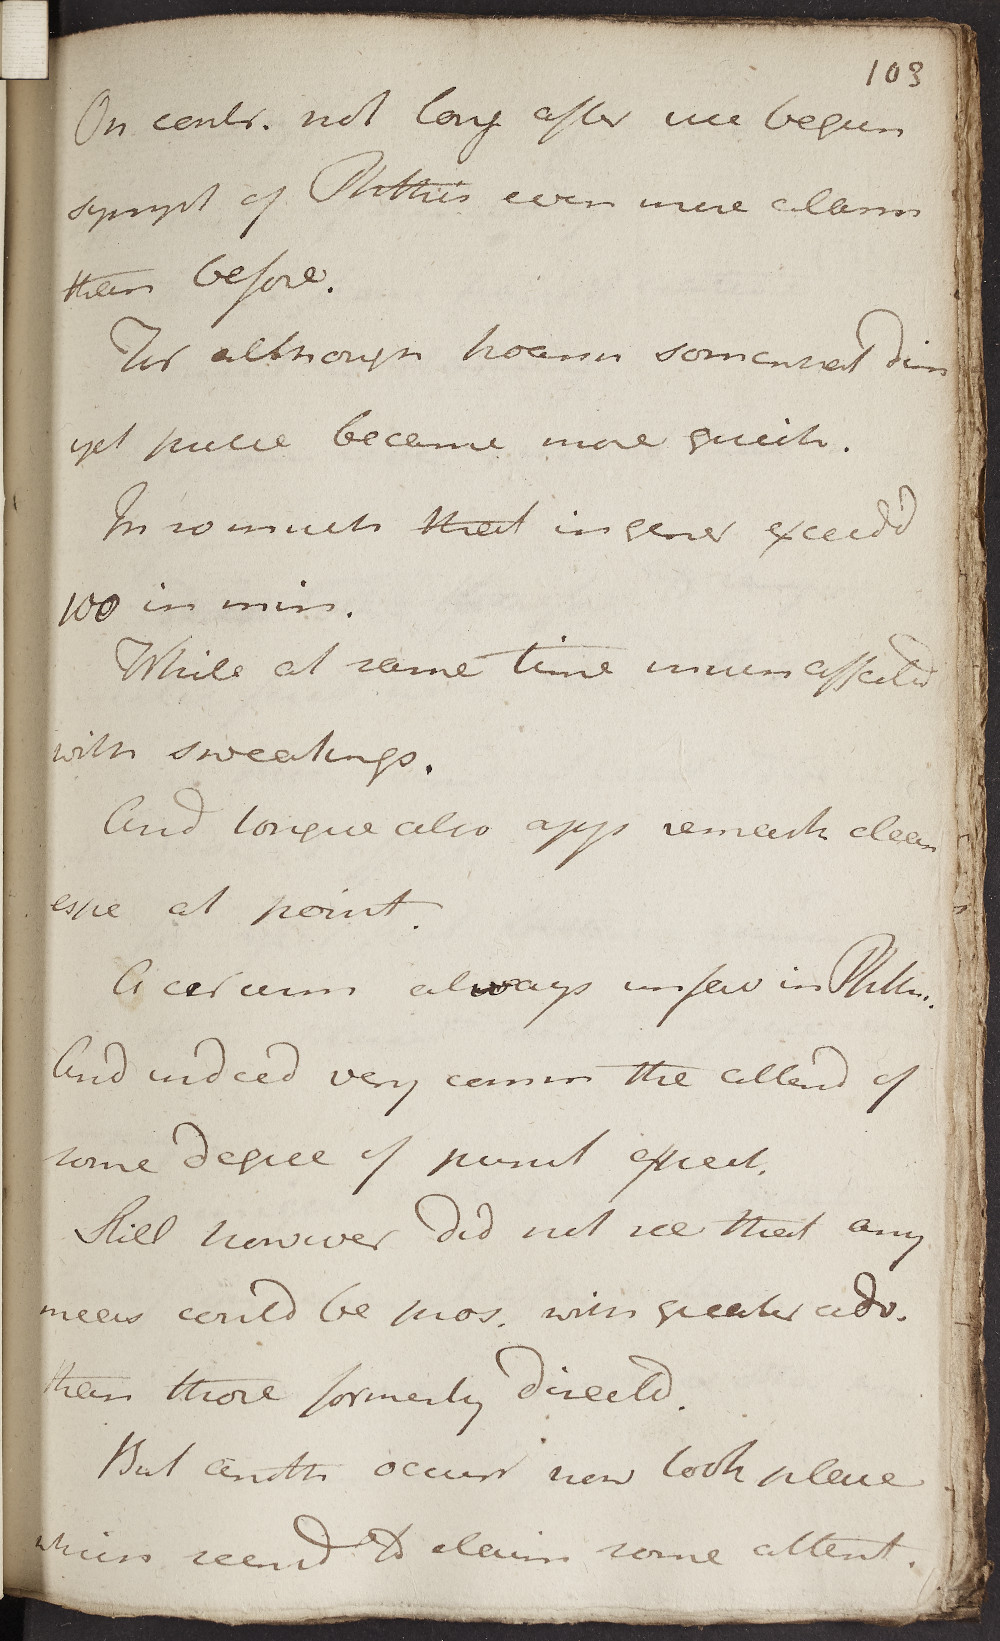 103
On contr. not long after we begun
sympt of Phthis even more alarm
than before.
For although hoarsn somewhat dim
yet pulse became more quick.
In so much that in gener exceedd
100 in min.
While at same time much affected
with sweatings.
And tongue also app remark clean
espe at point.
A circum always unfav in Phthis.
And indeed very comm the attend of
some degree of purul expect.
Still however did not see that any
means could be pros. with greater adv.
than those formerly directd.
But anoth occurr now took place
which seemd to claim some attent.